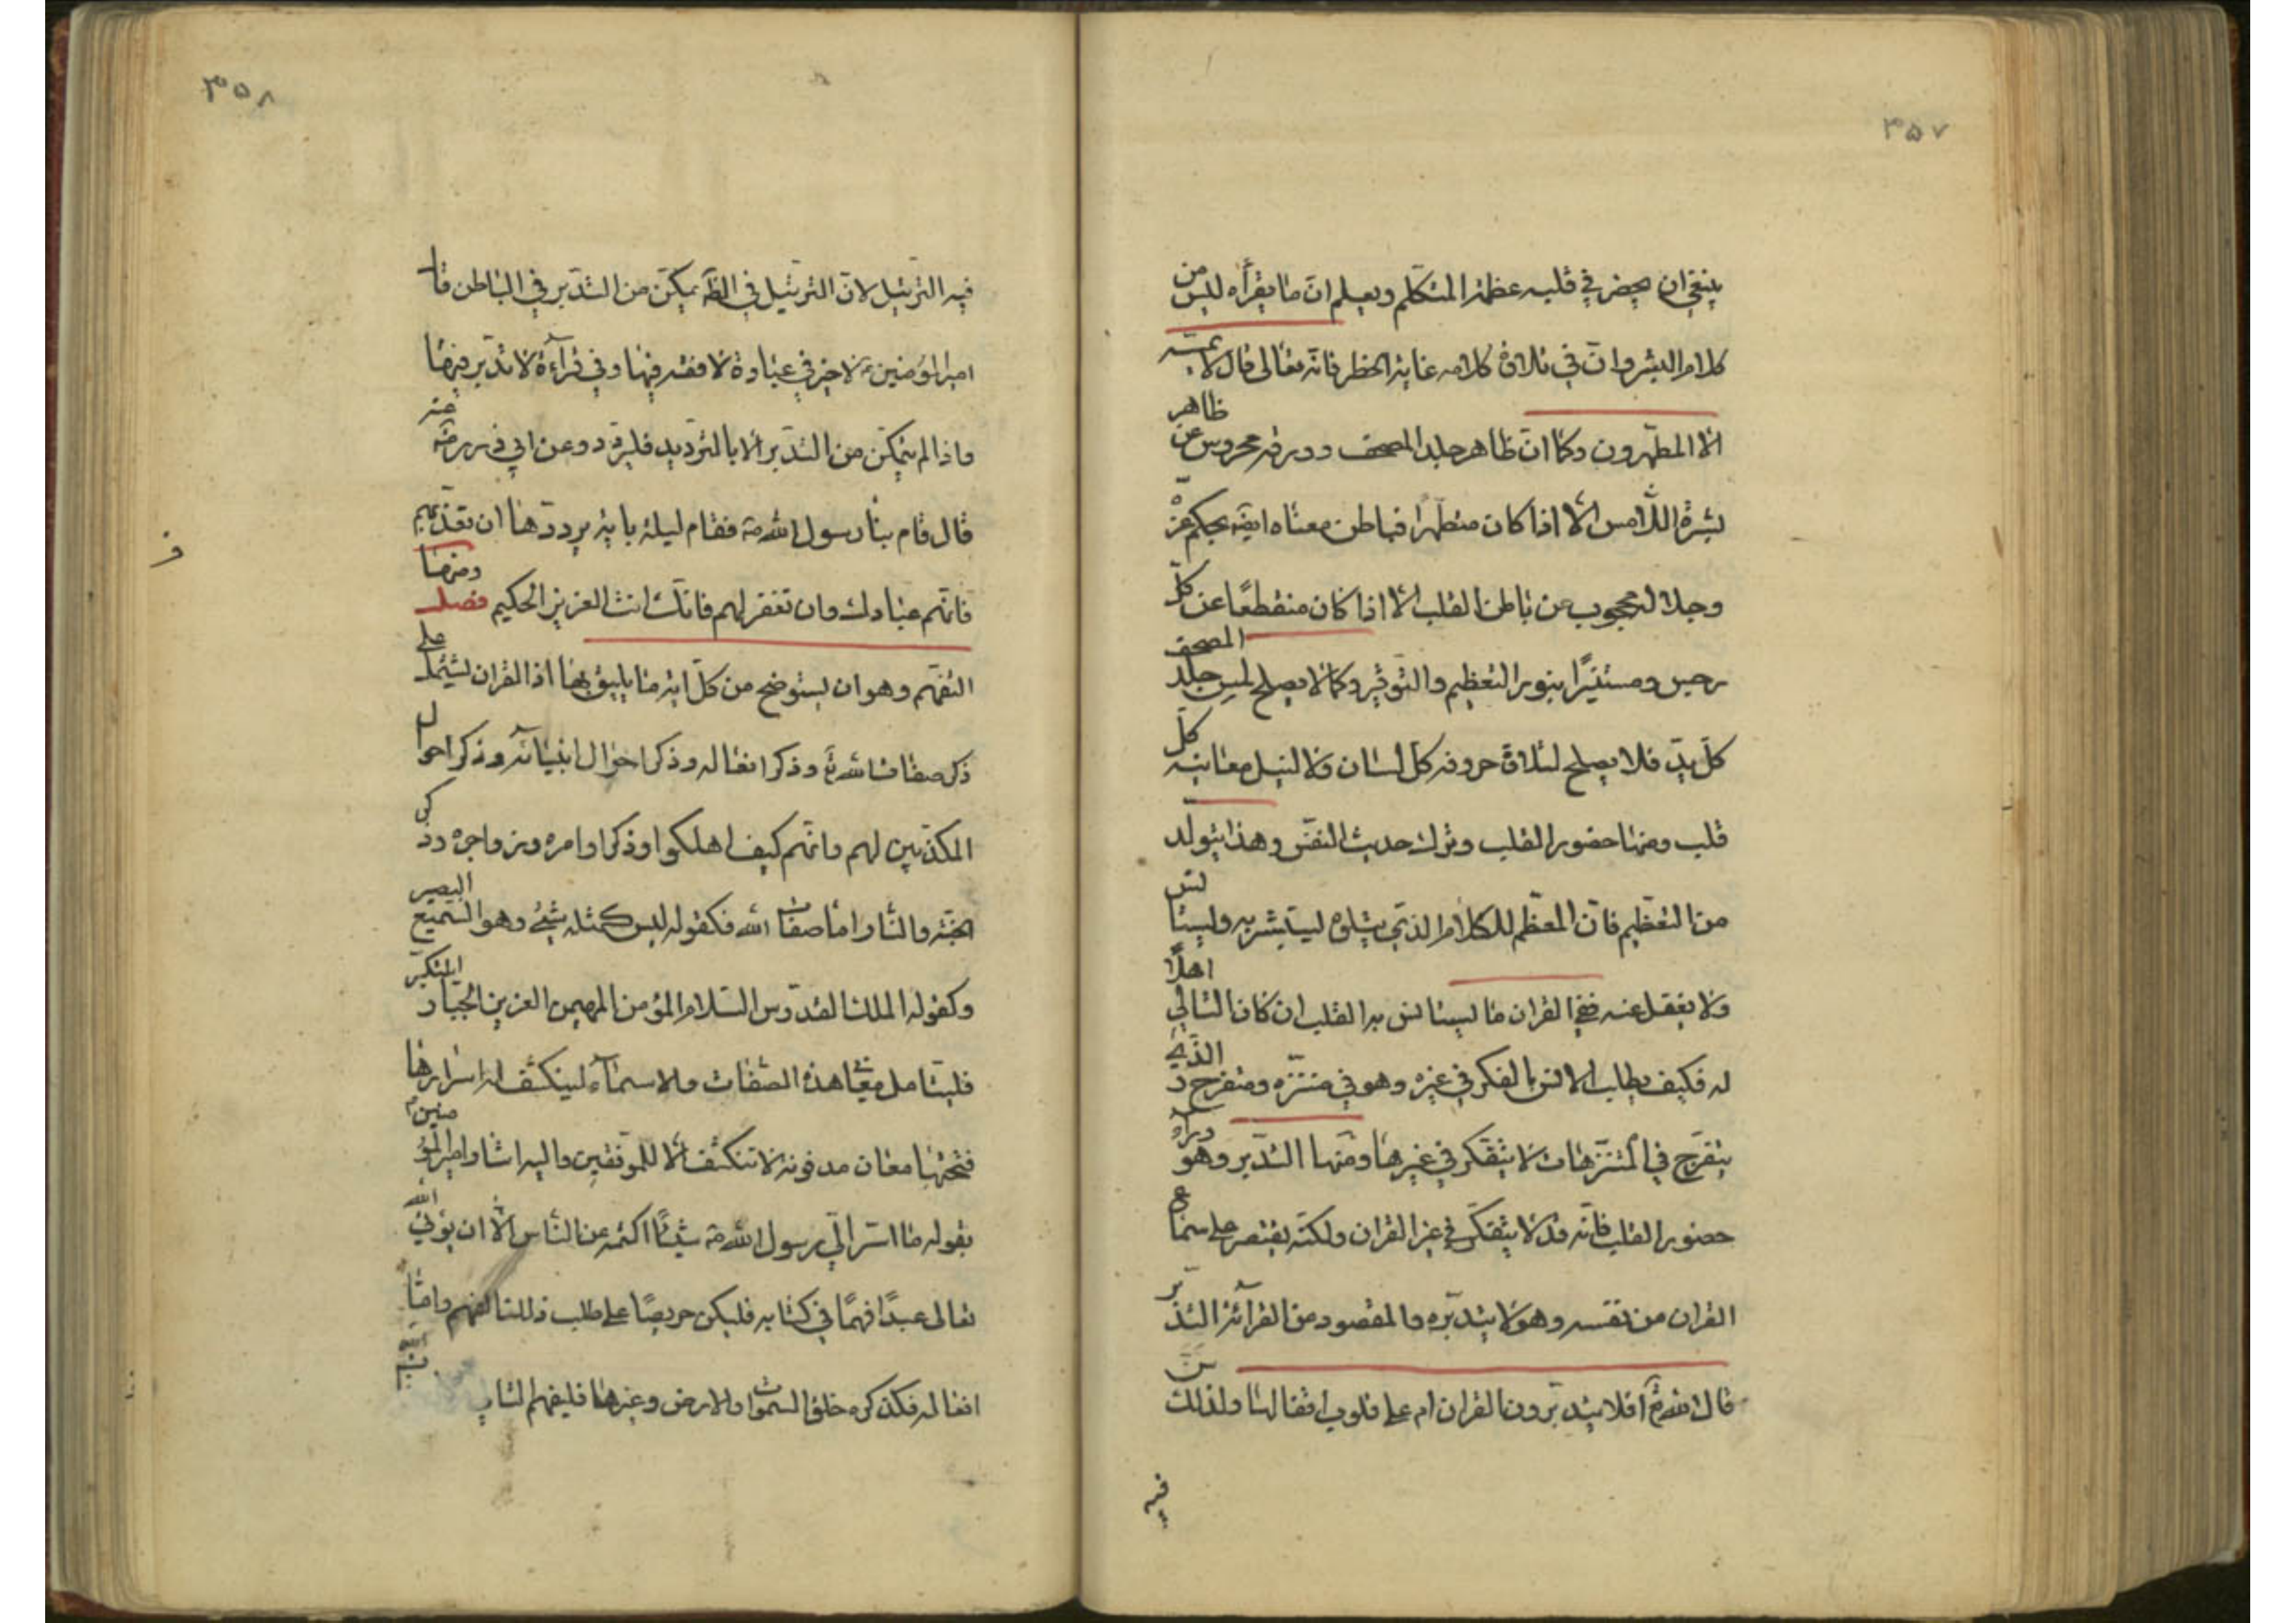 ٣٥٧
ينبغي ان يحضر في قلبه عظمة المتكلم ويعلم ان ما يقرأه ليس من
كلام البشر وان في تلاوة كلامه غاية الخطر فانه تعالى قال لا يمسه
الا المطهرون وكما ان ظاهر جلد المصحف وورقه محروس عن ظاهر
بشرة اللامس الا اذا كان متطهرا فباطن معناه ايضه بحكم عزه
وجلاله محجوب عن باطن القلب الا اذا كان منقطعًا عن كل
رجس ومستنيرًا بنور التعظيم والتوقير وكما لا يصلح لمس جلد المصحف
كل يد فلا يصلح لتلاوة حروفه كل لسان ولا لنيل معانيه كل
قلب ومنها حضور القلب وترك حديث النفس وهذا يتولد
من التعظيم فان المعظم للكلام الذي يتلوه ليستبشر به وليستانس
ولا يغفل عنه ففي القران ما ليستانس به القلب ان كان التالي اهلًا
له فكيف يطلب الانس بالفكر في غيره وهو في متنزه ومتفرج والذي
يتفرج في المتنزهات لا يتفكر في غيرها ومنها التدبر وهو وراء
حضور القلب فانه قد لا يتفكر في غير القران ولكنه يقتصر على سماع
القران من نفسه وهو لا يتدبره والمقصود من القرائة التدبر
قال الله تع افلا يتدبرون القران ام على قلوب اقفالها ولذلك سن
فيه
٣٥٨
فيه الترتيل لان الترتيل في الظه يمكن من التدبر في الباطن قال
امير المؤمنين ع لا خير في عبادة لا فقه فيها ولا في قرآءة لا تدبر فيها
واذا لم يتمكن من التدبر الا بالترديد فليردد وعن ابي ذر رضى عنه
قال قام بنا رسول الله صه فقام ليلة باية يرددها ان تعذبهم
فانهم عبادك وان تغفر لهم فانك انت العزيز الحكيم فصل ومنها
التفهم وهو ان يستوضح من كل اية ما يليق بها اذ القران يشتمل على
ذكر صفات الله تع وذكر افعاله وذكر احوال انبيائه وذكر احوال
المكذبين لهم وانهم كيف اهلكوا وذكر اوامره وزواجره وذكر
الجنة والنار اما صفات الله فكقوله ليس كمثله شئ وهو السميع البصير
وكقوله الملك القدوس السلام المؤمن المهيمن العزيز الجبار المتكبر
فليتامل معاني هذه الصفات والاسماء لينكشف له اسرارها
فتحتها معان مدفونة لا تنكشف الا للموفقين واليه اشار امير المؤمنين ع
بقوله ما اسر الي رسول الله صه شيئًا اكتمه عن الناس الا ان يؤتي الله
تعالى عبدًا فهمًا في كتابه فليكن حريصًا على طلب ذلك الفهم واما
افعاله فكذكره خلق السموات والارض وغيرها فليفهم التالي